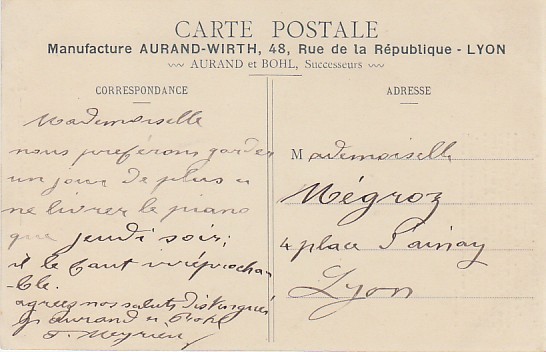 CARTE POSTALE
Manufacture AURAND-WIRTH, 48, Rue de la République - LYON
AURAND et BOHL, Successeurs
CORRESPONDANCE
Mademoiselle
nous préférons garder
un jour de plus et
ne livrer le piano
que jeudi soir;
il le faut irréprocha-
-ble.
agréez nos saluts distingués
Aurand et Bohl
ADRESSE
Mademoiselle
Mégroz
4 place d'ainay
Lyon